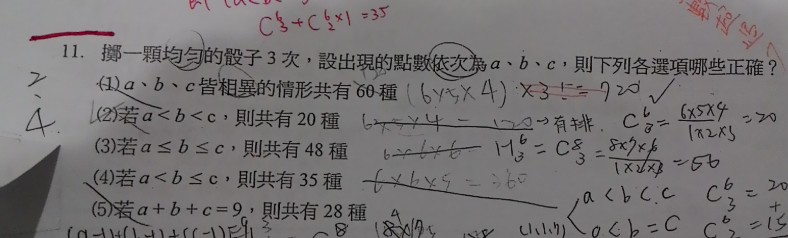 C⁶₃+C⁶₂×1=35
11. 擲一顆均勻的骰子 3 次，設出現的點數依次為 a、b、c，則下列各選項哪些正確？
2
(1) a、b、c 皆相異的情形共有 60 種 (6×5×4) ×3!=720
4. (2)若 a<b<c，則共有 20 種 6×5×4=120→有排. C⁶₃=6×5×4/1×2×3=20
(3)若 a≤b≤c，則共有 48 種 6×6×6 H⁶₃=C⁸₃=8×7×6/1×2×3=56
(4)若 a<b≤c，則共有 35 種 6×6×5=360
a<b<c C⁶₃=20
+
(5)若 a+b+c=9，則共有 28 種
a<b=C C⁶₂=15